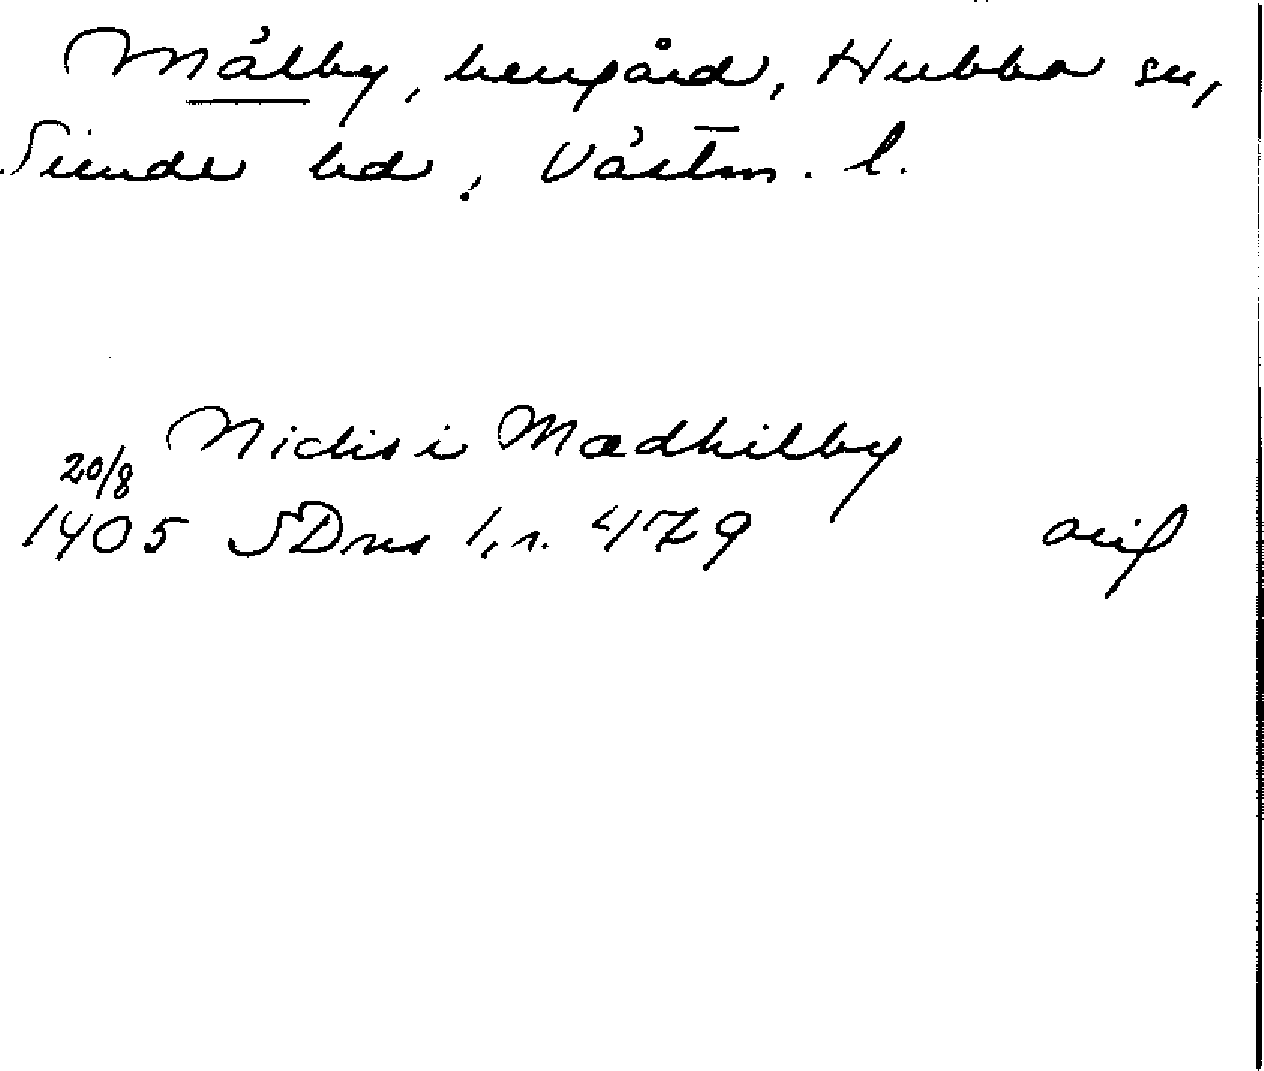 Mälby, herrgård, Hubbo sn,
Siende hd, Västm. l.
Niclis i Mædhilby
20/8
1405 SDns 1, n. 479 orig